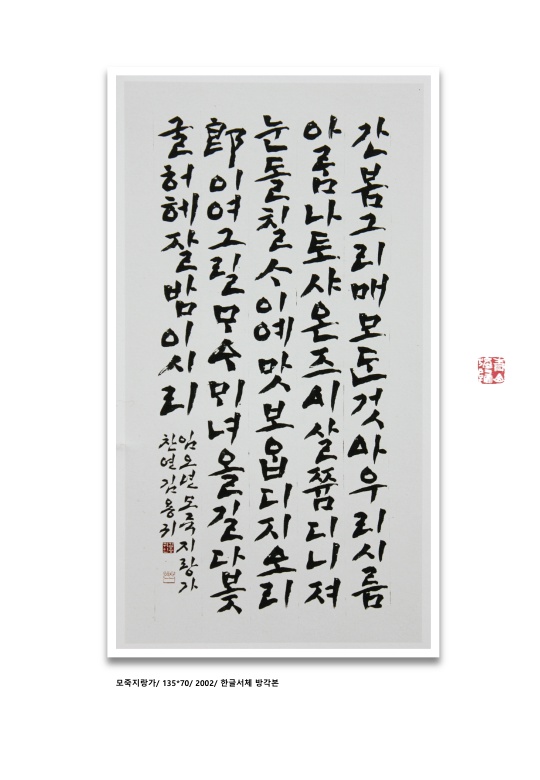 간봄그리매모든것아우리시름
아룸나토샤온즈시살쯈디니져
눈돌칠ㅅ이예맛보웁디지오리
郎이여그릴무수미녀올길다봊
굴허헤잘밤이시리
임오년모죽지랑가
찬연김용귀
모죽지랑가/ 135*70/ 2002/ 한글서체 방각본